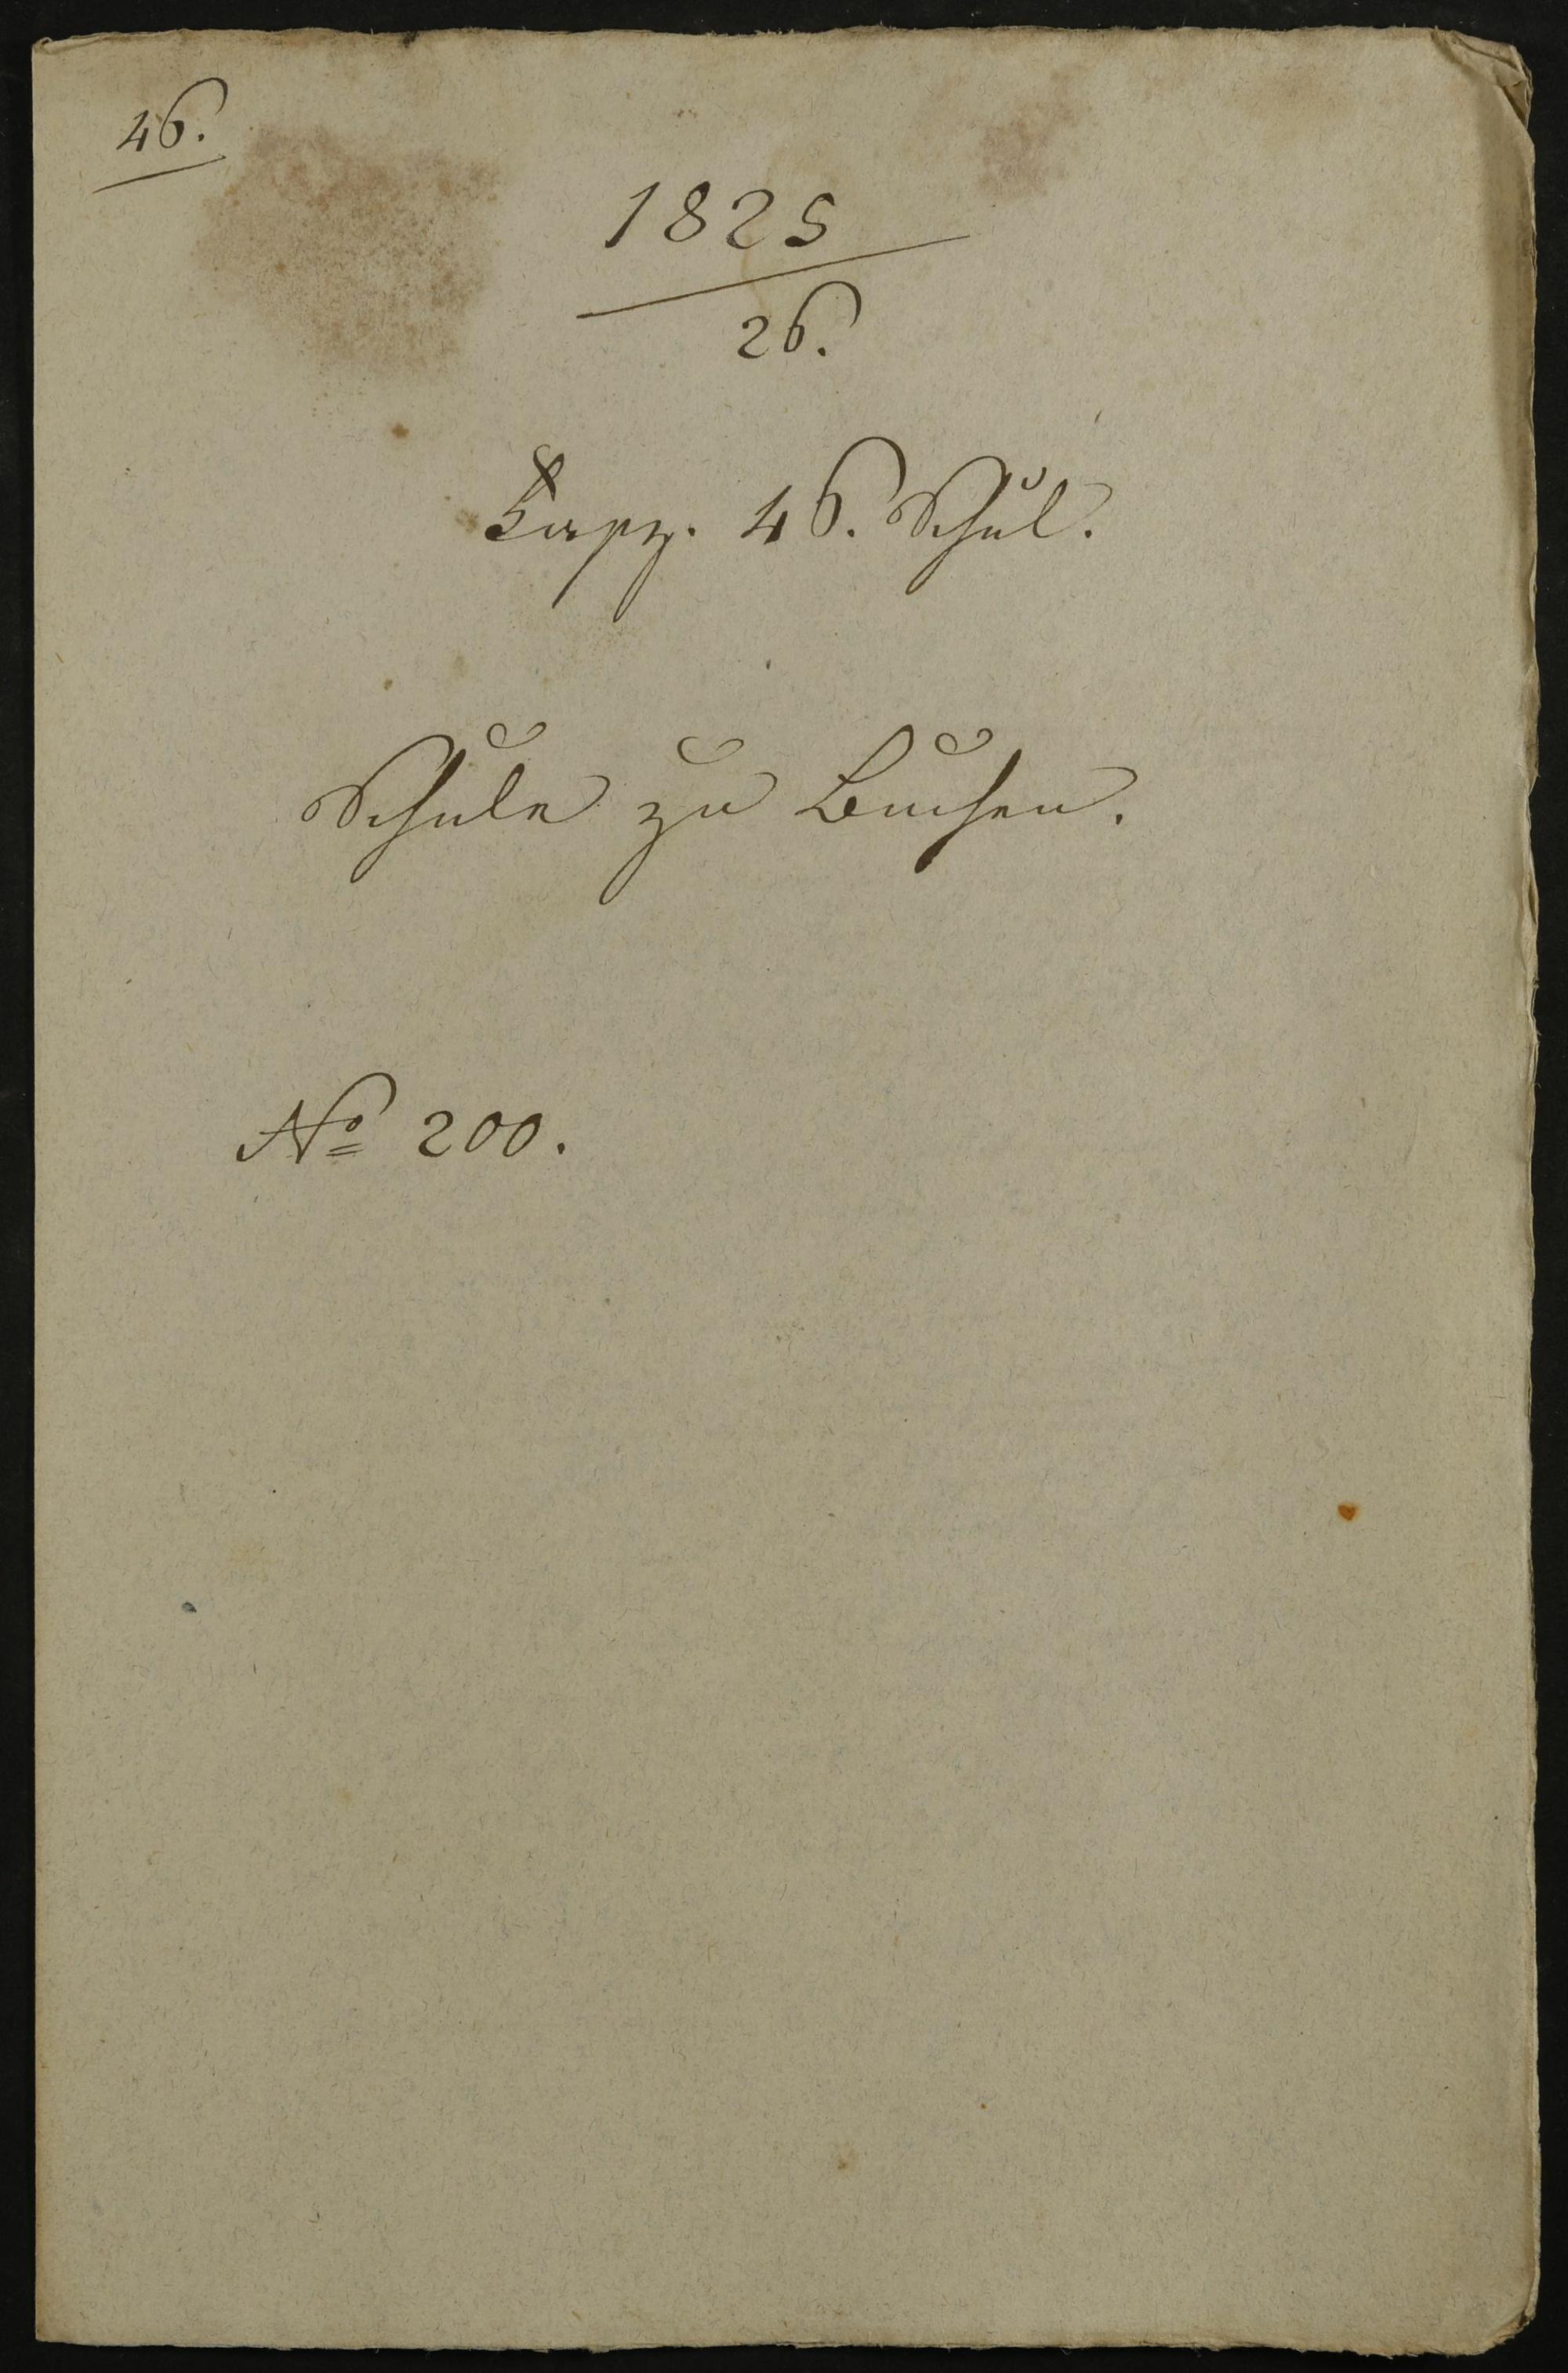 46.
1825
26.
46. Schul.
Schule zu Buchen.
No 200.